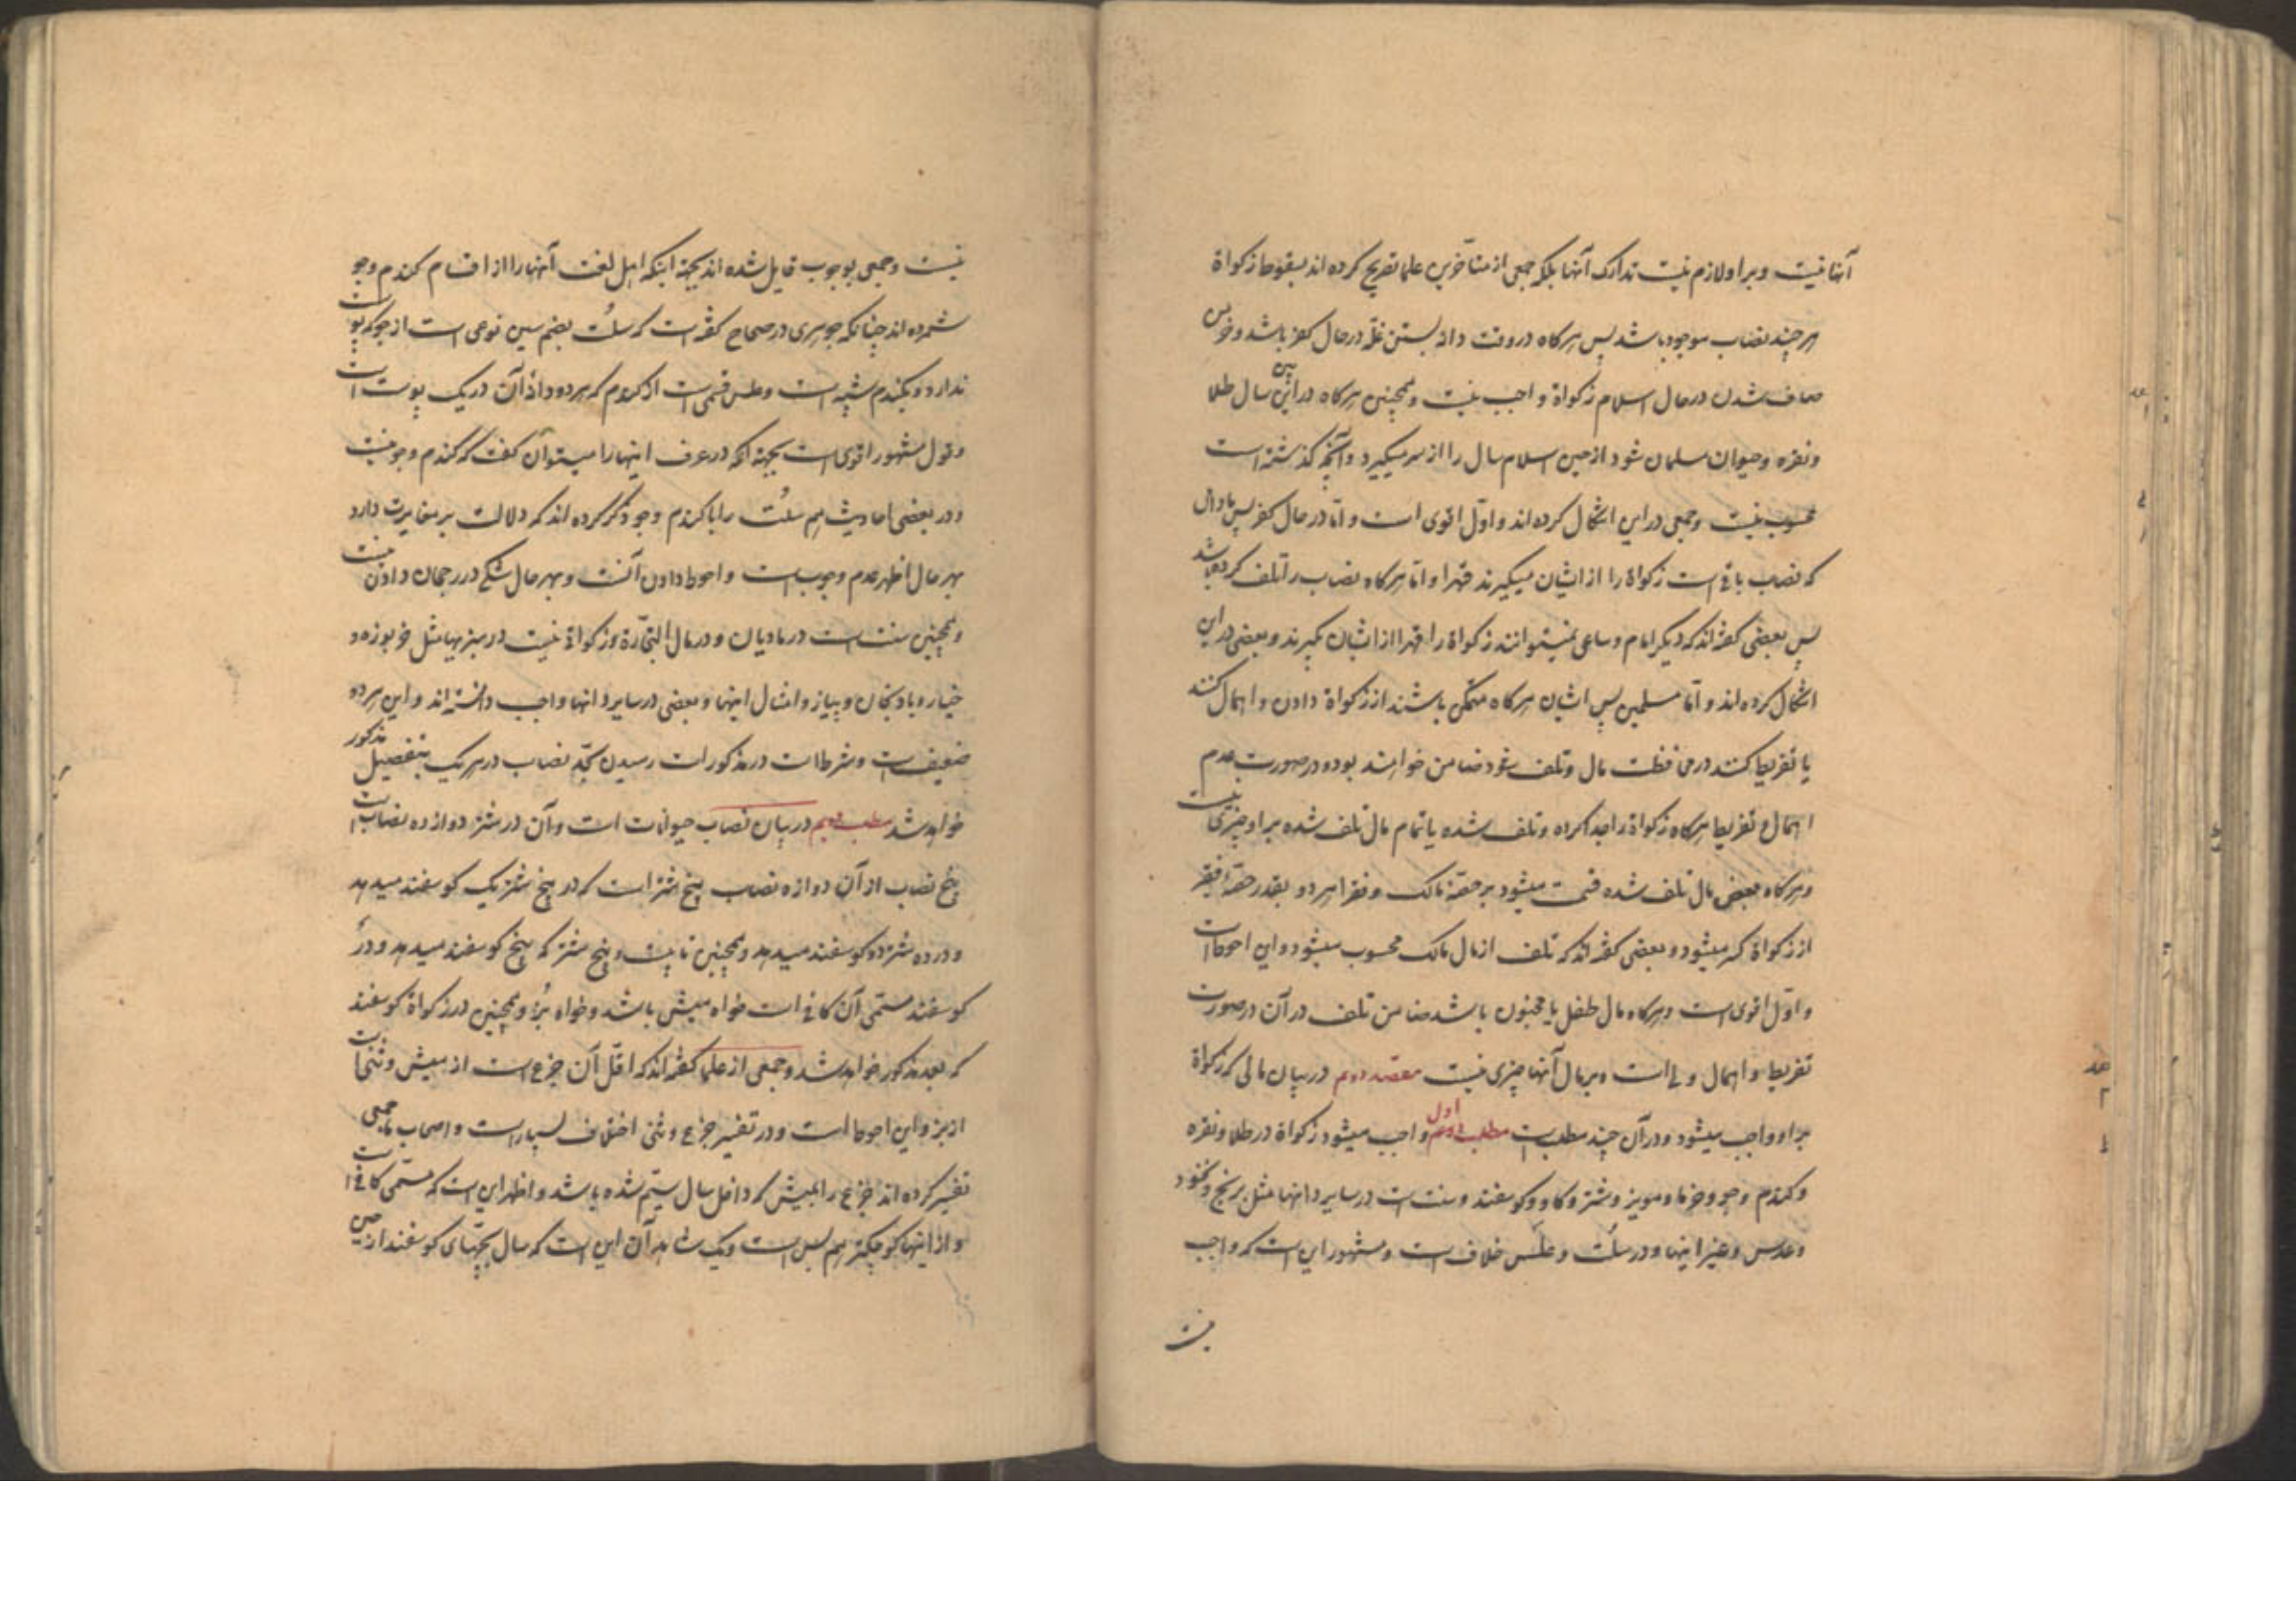 آنها نیست و بر او لازم نیست تدارک آنها بلکه جمعی از متأخرین علما تصریح کرده اند بسقوط زکواة
هر چند نصاب موجود باشد پس هر کاه در وقت دانه بستن غله در حال کفر باشد و خرمن
صاف شدن در حال اسلام زکواة واجب نیست و همچنین هر کاه در اثنای سال طلا
و نقره و حیوان مسلمان شود از حین اسلام سال را از سر میکیرد و آنچه کذشته است
محسوب نیست و جمعی در این اشکال کرده اند و اوّل اقوی است و امّا در حال کفر پس مادام
که نصاب باقی است زکواة را از ایشان میکیرند قهرا و امّا هر کاه نصاب را تلف کرده باشد
پس بعضی کفته اند که دیکر امام و ساعی نمیتوانند زکواة را قهرا از ایشان بکیرند و بعضی در این
اشکال کرده اند و امّا مسلمین پس ایشان هر کاه متمکّن باشند از زکواة دادن و اهمال کنند
یا تفریط کنند در محافظت مال و تلف شود ضامن خواهند بود و در صورت عدم
اهمال و تفریط هر کاه زکواة را جدا کرده و تلف شده یا تمام مال تلف شده بر او چیزی نیست
و هر کاه بعض مال تلف شده قسمت میشود بر حصّهٔ مالک و فقرا هر دو بقدر حصّهٔ فقیر
از زکواة کسر میشود و بعضی کفته اند که تلف از مال مالک محسوب میشود و این احوط است
و اوّل اقوی است و هر کاه مال طفل یا مجنون باشد ضامن تلف در آن در صورت
تفریط و اهمال ولی است و بر مال آنها چیزی نیست مقصد دوم در بیان مالی که زکواة
بر او واجب میشود و در آن چند مطلب است مطلب اول واجب میشود زکواة در طلا و نقره
و کندم و جو و خرما و مویز و شتر و کاو و کوسفند و سنت است در سایر دانها مثل برنج و نخود
و عدس و غیر اینها و در سُلت و علَس خلاف است و مشهور این است که واجب
نیست
نیست و جمعی بوجوب قایل شده اند بجهة اینکه اهل لغت آنها را از اقسام کندم و جو
شمرده اند چنانکه جوهری در صحاح کفته است که سلُت بضم سین نوعی است از جو که پوست
ندارد و بکندم شبیه است و علس قسمی است از کندم که هر دو دانهٔ آن در یک پوست است
و قول مشهور اقوی است بجهة آنکه در عرف اینها را میتوان کفت که کندم و جو نیست
و در بعضی احادیث هم سُلت را با کندم و جو ذکر کرده اند که دلالت بر مغایرت دارد
بهر حال اظهر عدم وجوب است و احوط دادن آنست و بهر حال شکی در رجحان دادن نیست
و همچنین سنت است در مادیان و در مال التجّارة و زکواة نیست در سبزیها مثل خربوزه و
خیار و بادنجان و پیاز و امثال اینها و بعضی در سایر دانها واجب دانسته اند و این هر دو
ضعیف است و شرط است در مذکورات رسیدن بحدّ نصاب در هر یک بتفصیل مذکور
خواهد شد مطلب دویم در بیان نصاب حیوانات است و آن در شتر دوازده نصاب است
پنج نصاب از آن دوازه نصاب پنج شتر است که در پنج شتر یک کوسفند میدهد
و در ده شتر دو کوسفند میدهد و همچنین تا بیست و پنج شتر که پنج کوسفند میدهد و در
کوسفند مسمّی آن کافی است خواه میش باشد و خواه بُز و همچنین در زکواة کوسفند
که بعد مذکور خواهد شد و جمعی از علما کفته اند که اقلّ آن جذع است از میش و ثنی است
از بز و این احوط است و در تفسیر جذع و ثنی اختلاف بسیار است و اصحاب ما جمعی
تفسیر کرده اند جذع را بمیش که داخل سال سیّم شده باشد و اظهر این است که مسمّی کافی است
و از اینها کوچکتر هم بس است و یک شاهد آن این است که سال بچّهای کوسفند از حین